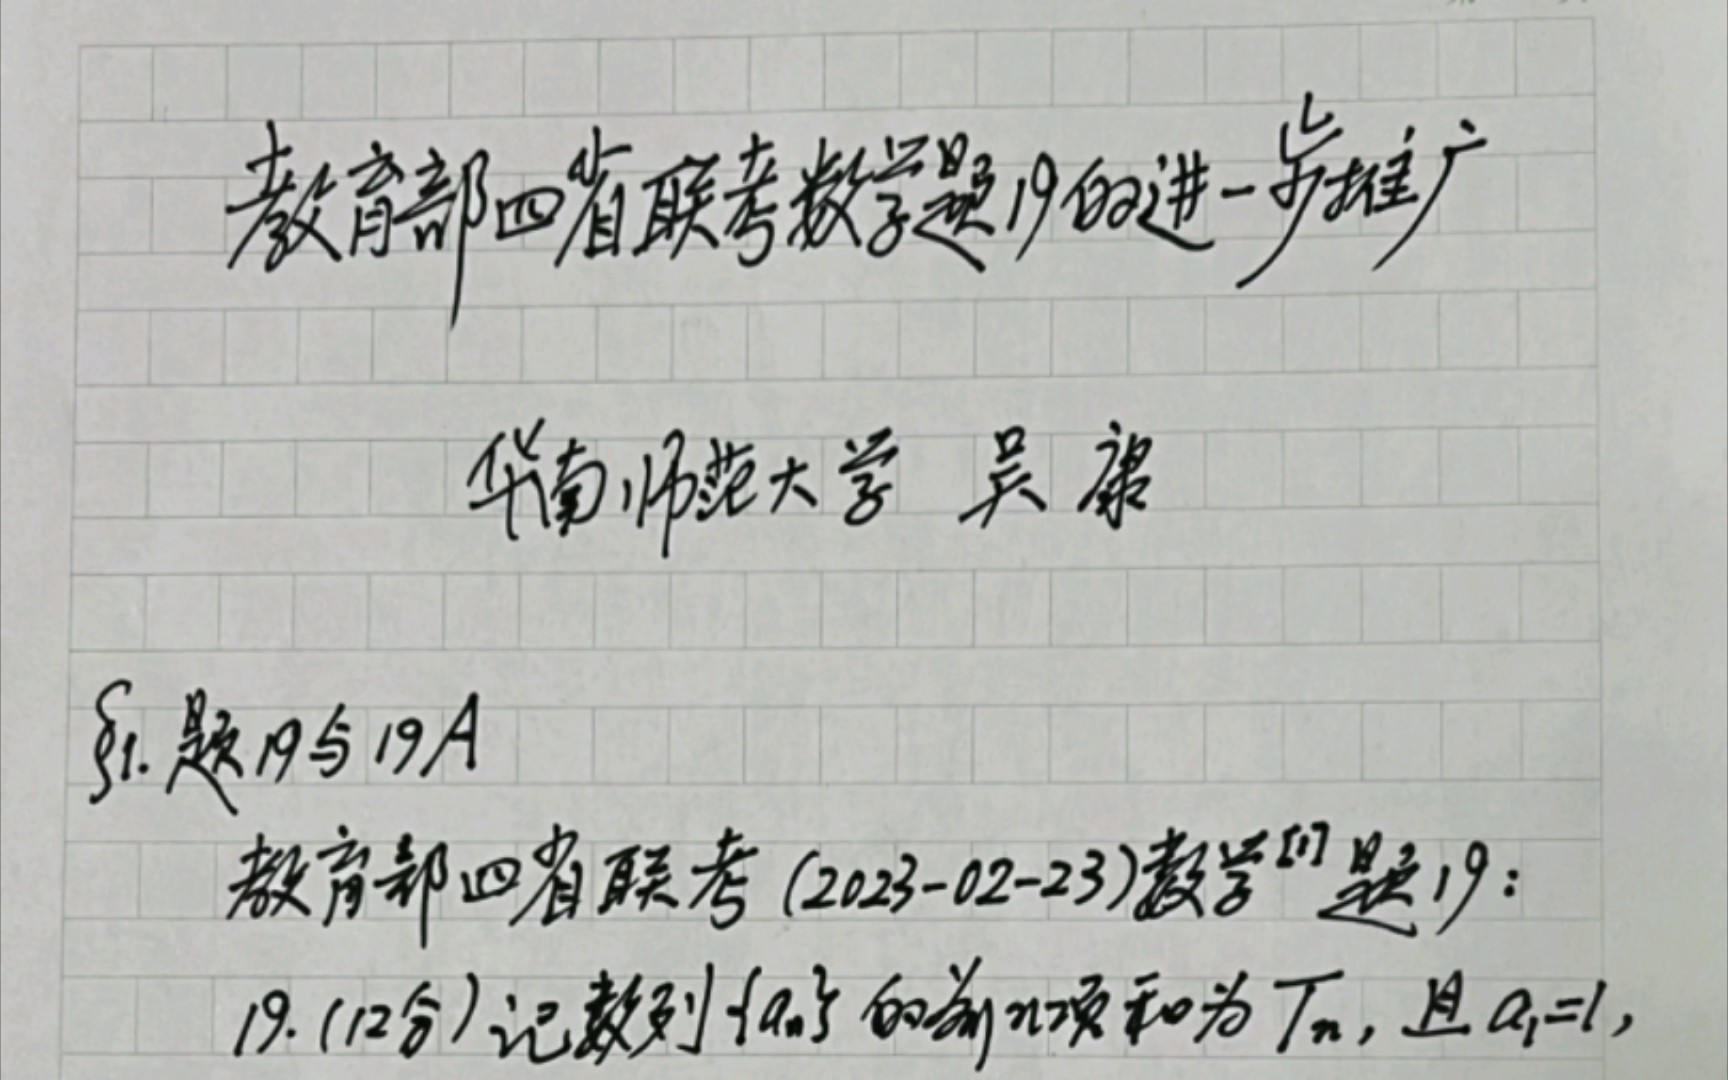 教育部四省联考数学题19的进一步推广
华南师范大学 吴康
§1. 题19与19A
教育部四省联考(2023-02-23)数学[1]题19:
19.(12分)记数列{aₙ}的前n项和为Tₙ, 且a₁=1,